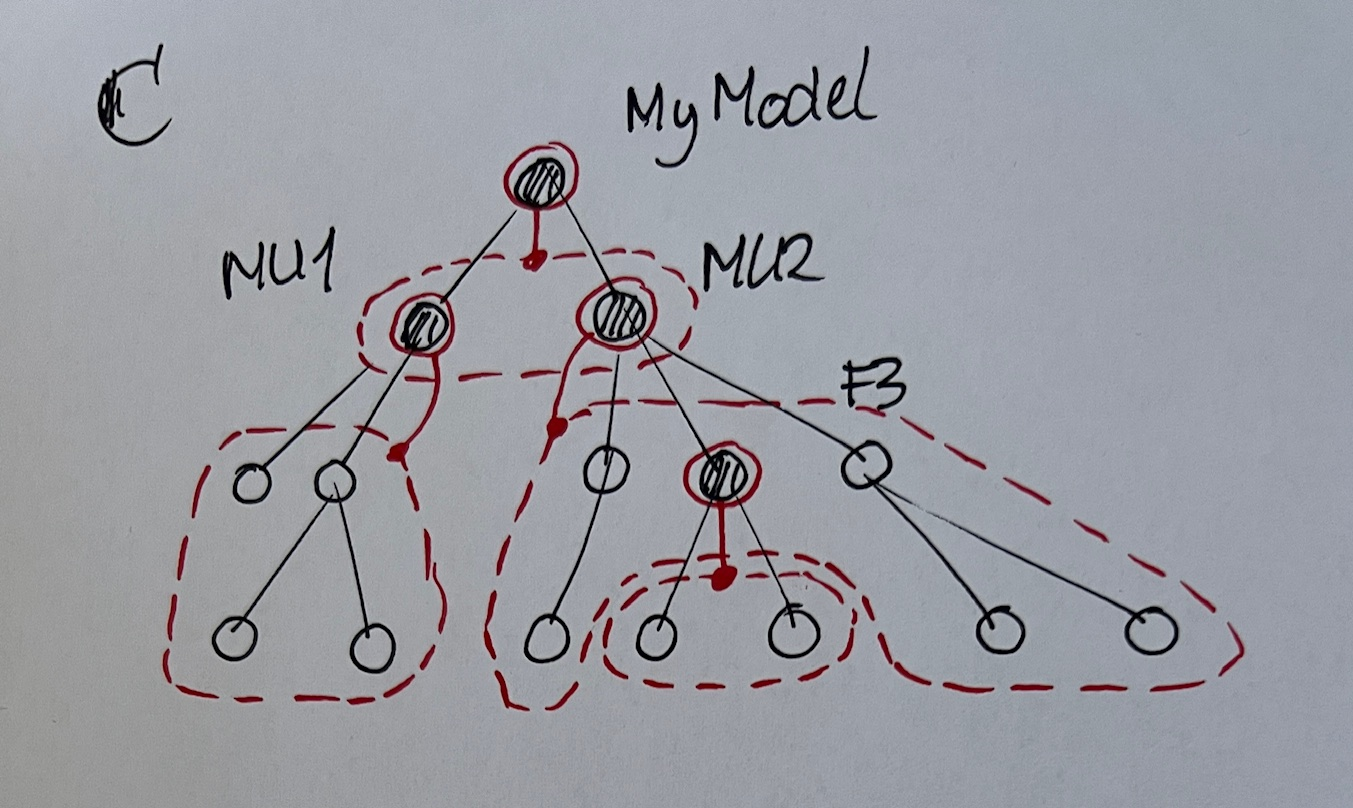 C
My Model
MU1
MU2
F3